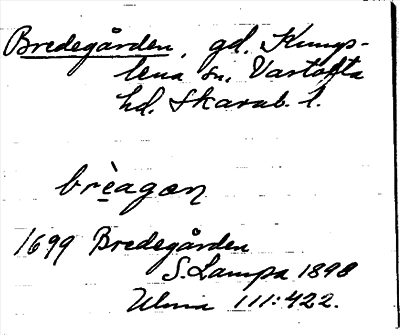 Bredegården, gd. Kungs-
lena sn. Vartofta
hd. Skarab. l.
brèagæn
1699 Bredegården
S. Lampa 1898
Ulma 111:422.